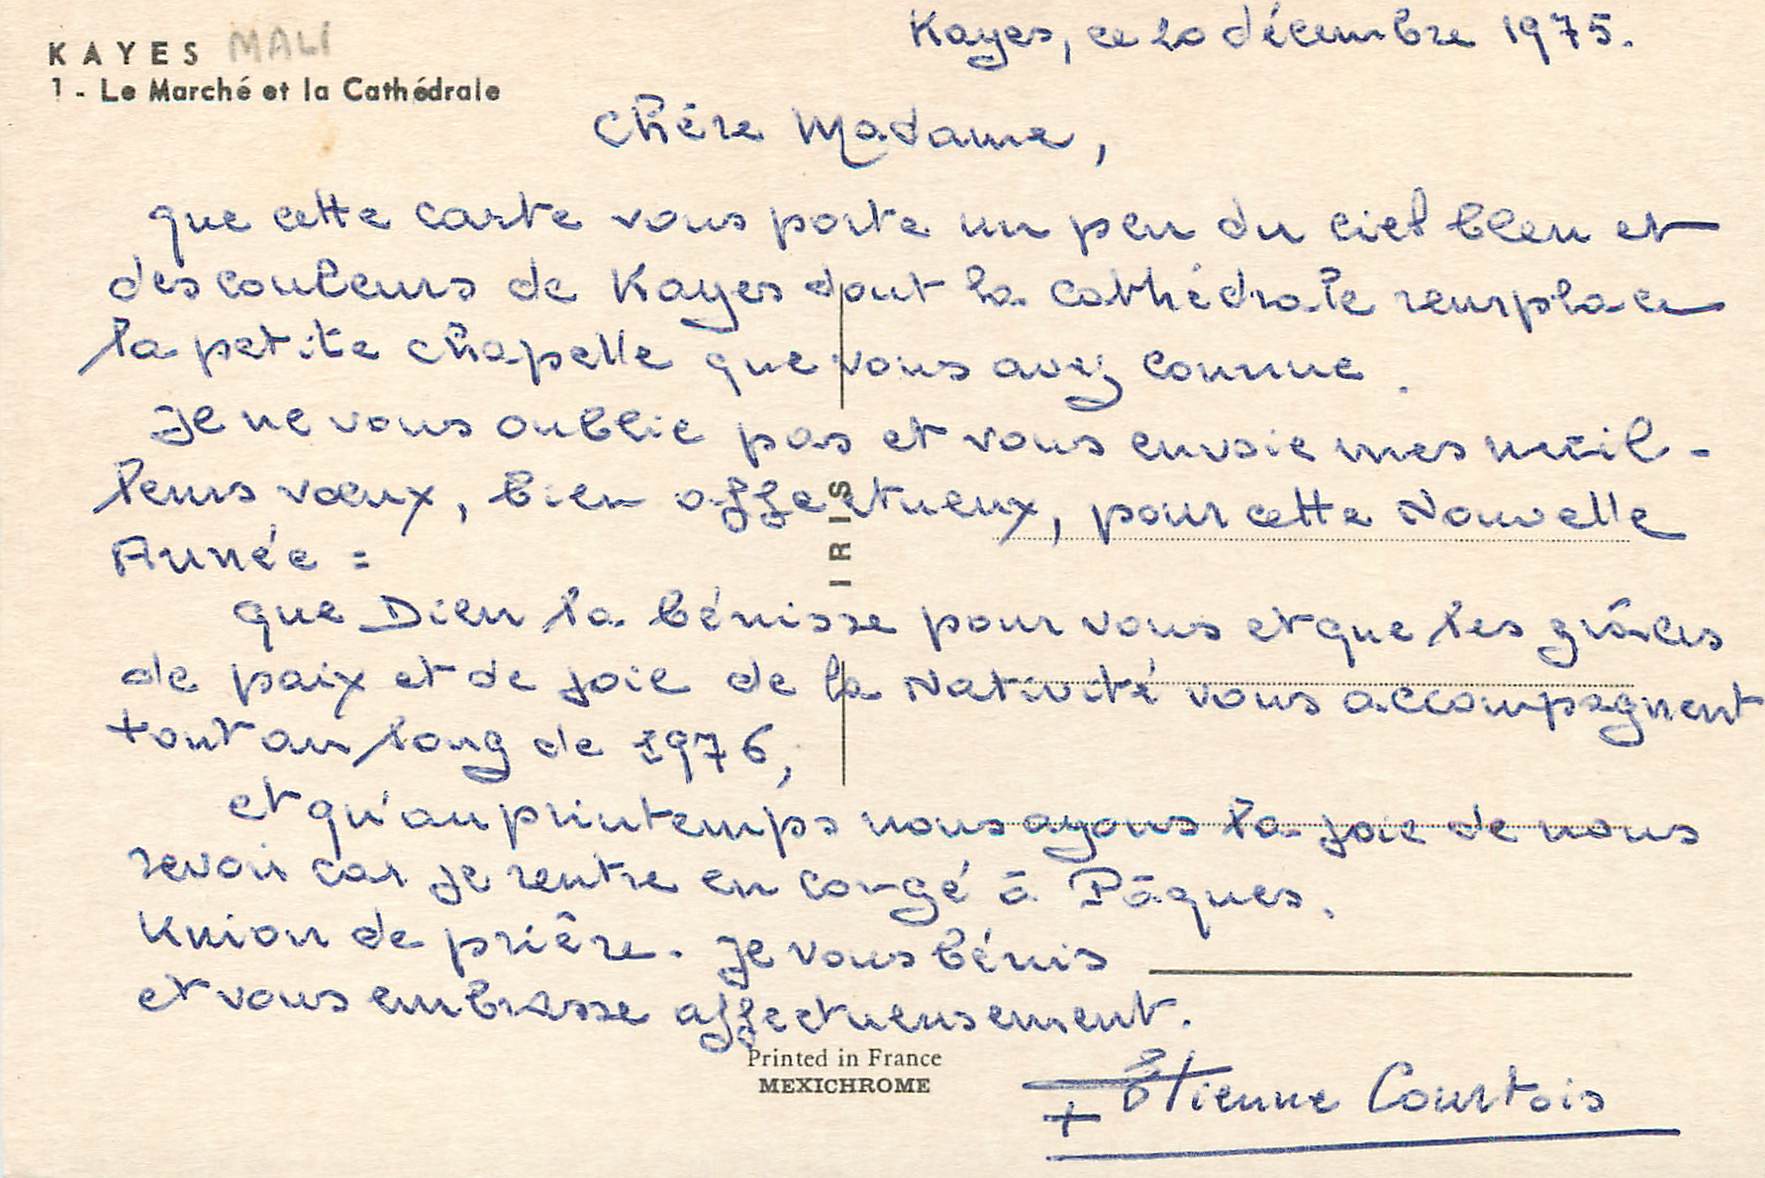 KAYES MALI
1 - Le Marché et la Cathédrale
Kayes, ce 20 décembre 1975.
Chère Madame,
que cette carte vous porte un peu du ciel bleu et
des couleurs de Kayes dont la cathédrale remplace
la petite chapelle que vous avez connue.
Je ne vous oublie pas et vous envoie mes meil-
leurs vœux, bien affectueux, pour cette Nouvelle
Année :
que Dieu la bénisse pour vous et que les grâces
de paix et de joie de la Nativité vous accompagnent
tout au long de 1976,
et qu'au printemps nous ayons la joie de nous
revoir car je rentre en congé à Pâques.
Union de prière. Je vous bénis
et vous embrasse affectueusement.
+ Etienne Courtois
IRIS
Printed in France
MEXICHROME